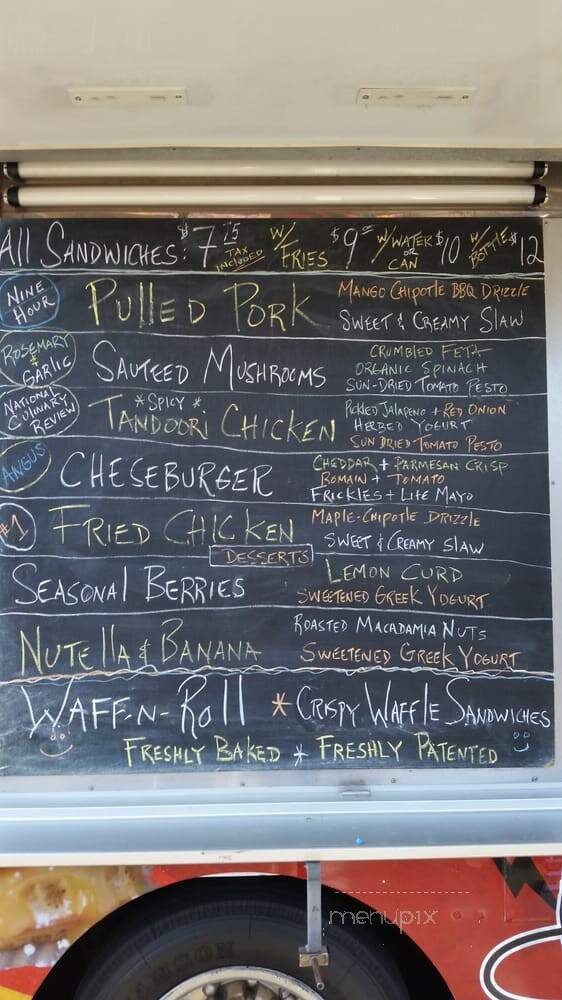 All Sandwiches: $7.25 TAX INCLUDED w/ Fries $9 w/ Water or Can $10 w/ Bottle $12
Nine Hour Pulled Pork
Mango Chipotle BBQ Drizzle
Sweet & Creamy Slaw
Rosemary & Garlic Sauteed Mushrooms
Crumbled Feta
Organic Spinach
Sun-Dried Tomato Pesto
National Culinary Review *Spicy* Tandoori Chicken
Pickled Jalapeno + Red Onion
Herbed Yogurt
Sun Dried Tomato Pesto
Angus Cheseburger
Cheddar + Parmesan Crisp
Romain + Tomato
Frickles + Lite Mayo
#1 Fried Chicken
Maple-Chipotle Drizzle
Sweet & Creamy Slaw
Desserts
Seasonal Berries
Lemon Curd
Sweetened Greek Yogurt
Nutella & Banana
Roasted Macadamia Nuts
Sweetened Greek Yogurt
Waffn-Roll * Crispy Waffle Sandwiches
Freshly Baked * Freshly Patented
menupix